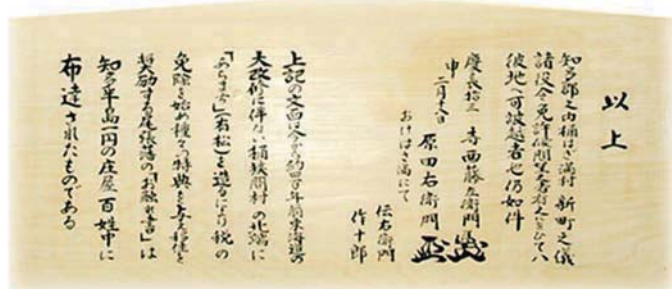 以上
知多郡之内桶はざ満村 新町之儀
諸役令免許候間望之者有之をひてハ
彼地へ可被越者也仍如件
慶長拾三 寺西藤左衛門
申
二月十八日 原田右衛門
おけはざ満にて
伝右衛門
作十郎
上記の文面は今から約四百年前東海道の
大改修に伴ない桶狭間村の北端に
「あらまち」(有松)を造るにより税の
免除を始め種々の特典を与え移住を
奨励する尾張藩の「お触れ書」は
知多半島一円の庄屋百姓中に
布達されたものである